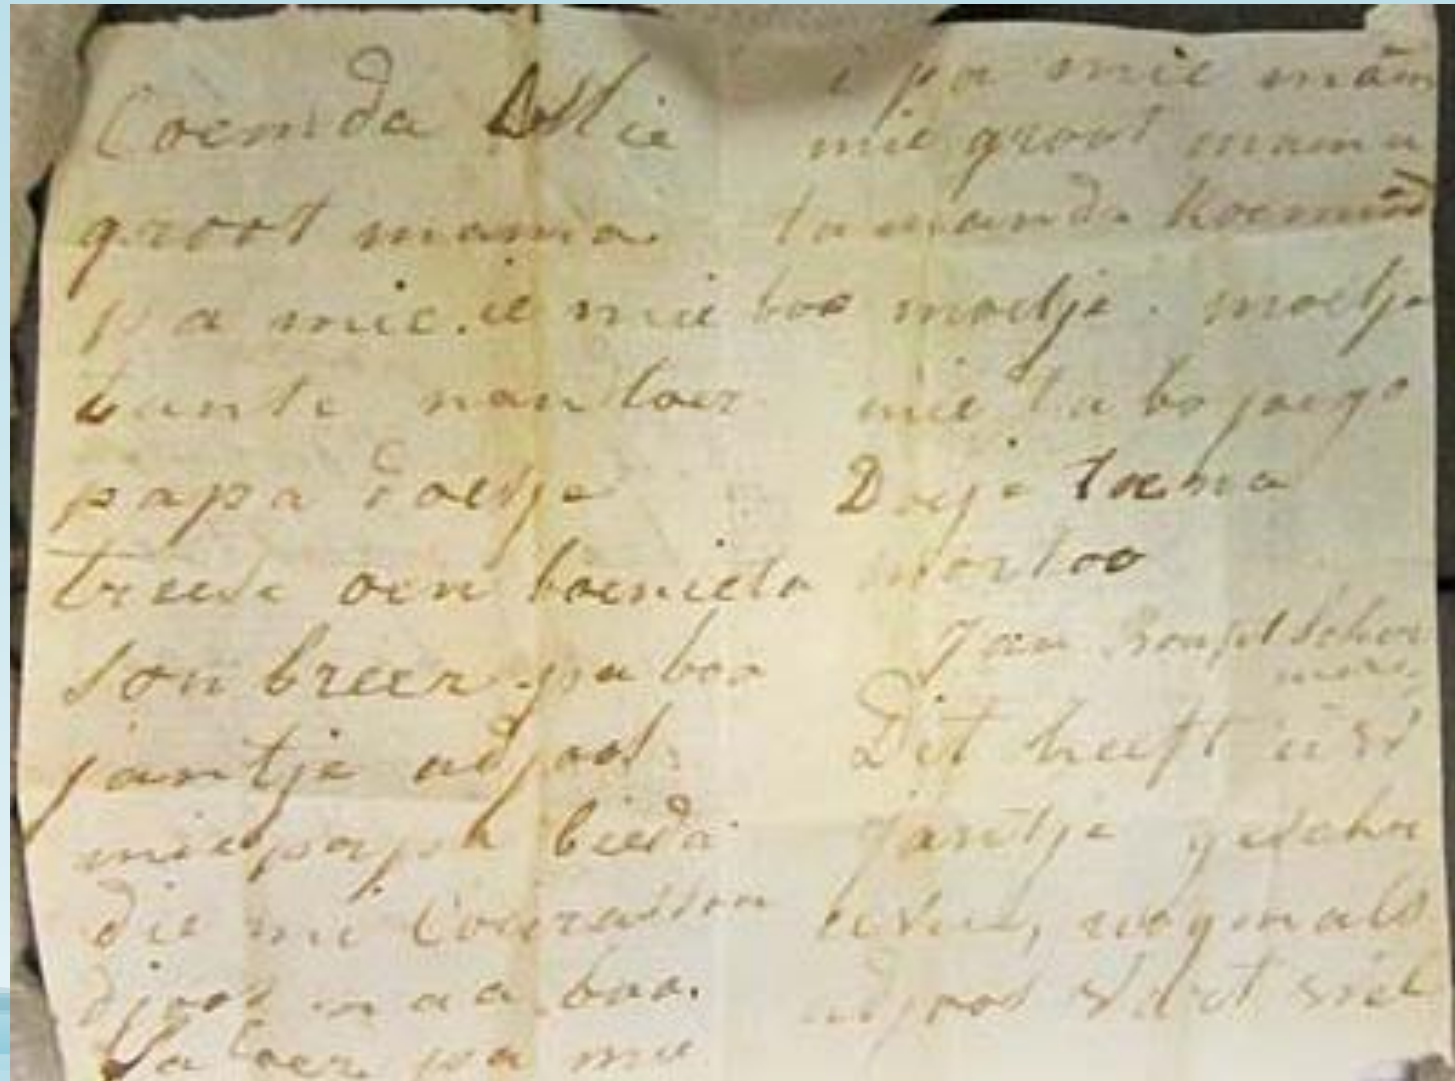 Coemda Mie
groot mama
pa mie. ie mie boo
tante nan toer
papa doetje
treese oen boenieto
son breer pa boo
jantje adjoos
mie papa bieda
die mi Courasson
djoos naa boo.
Ta toer pa mie
i pa mie mam
mie groot mama
ta manda koemind
moetje. moetje
mie ta bo joego
Doeje toema
mortoo
Jan Boufet Schoo
Dit heeft uw
Jantje geschre
even, nogmals
adjoos